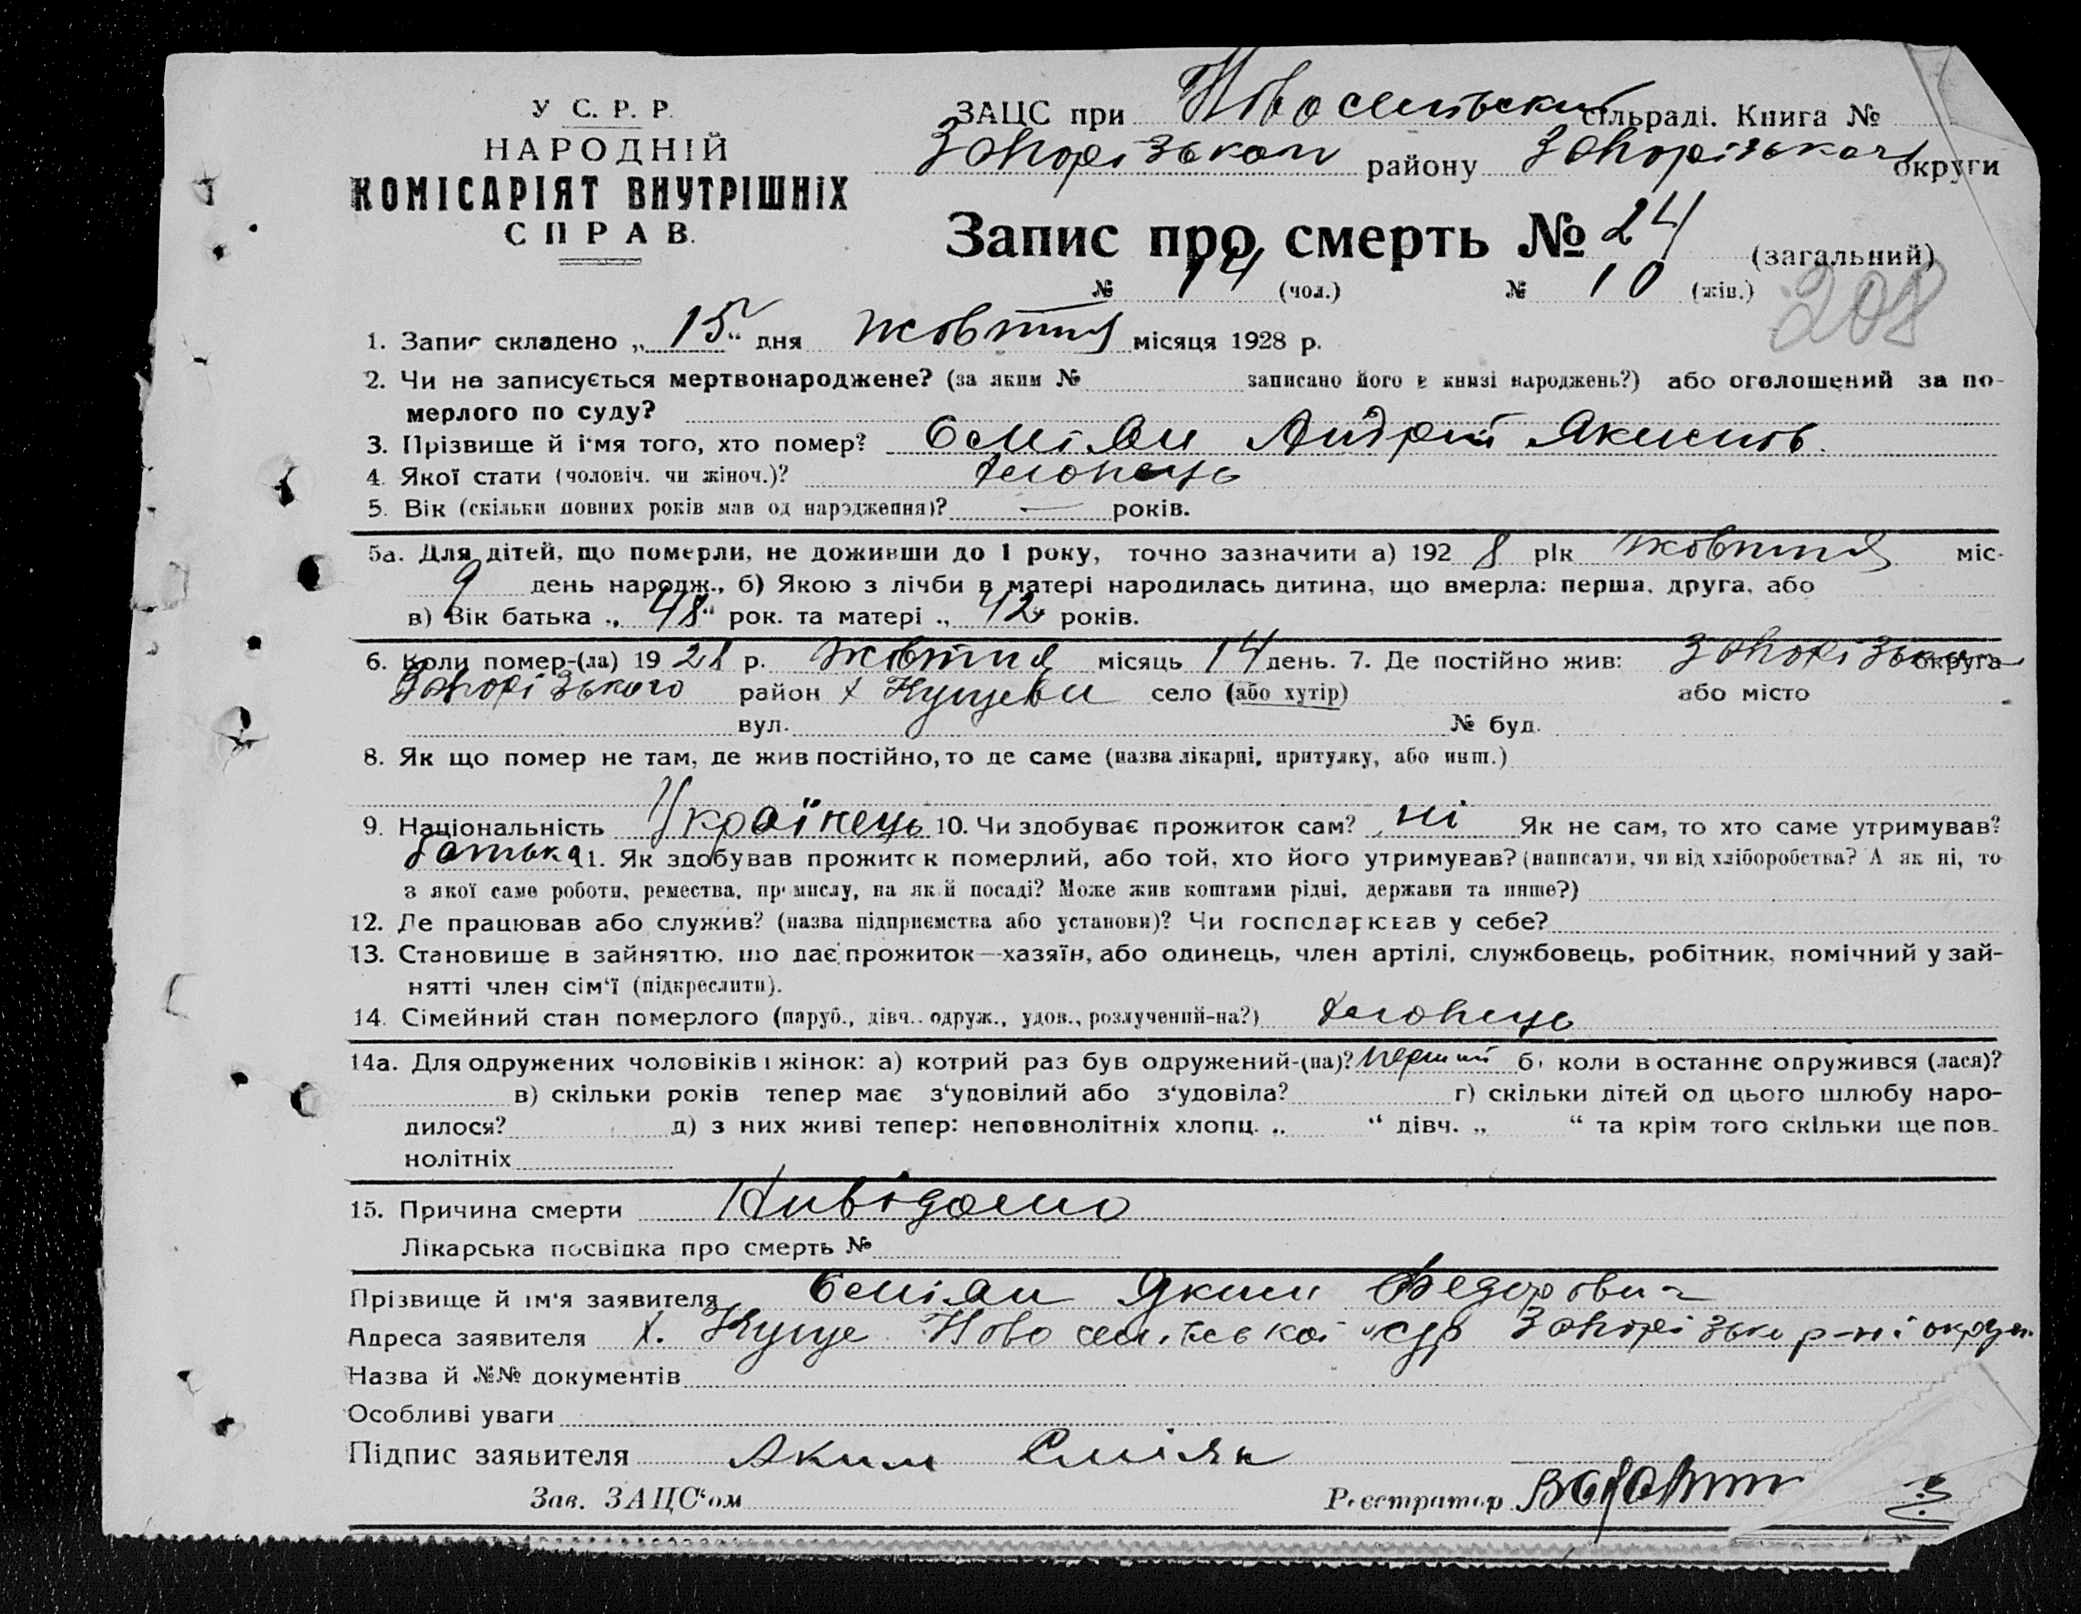 У С. Р. Р.
НАРОДНІЙ
КОМІСАРІЯТ ВНУТРІШНІХ
СПРАВ.
ЗАЦС при Новоселівській сільраді. Книга №
Запорізького району Запорізької округи
Запис про смерть № 24 (загальний)
№ 14 (чол.) № 10 (жін.)
208
1. Запис складено „ 15 “ дня жовтня місяця 1928 р.
2. Чи не записується мертвонароджене? (за яким № записано його в книзі народжень?) або оголошений за по-
мерлого по суду?
3. Прізвище й ім'я того, хто помер? Єміян Андрій Якимов.
4. Якої стати (чоловіч. чи жіноч.)? хлопець
5. Вік (скільки повних років мав од народження)? — років.
5а. Для дітей, що померли, не доживши до 1 року, точно зазначити а) 192 8 рік жовтня міс.
9 день народж., б) Якою з лічби в матері народилась дитина, що вмерла: перша, друга, або
в) Вік батька „ 48 “ рок. та матері „ 42 “ років.
6. Коли помер-(ла) 19 28 р. жовтня місяць 14 день. 7. Де постійно жив: Запорізька округа
Запорізького район х Кущеви село (або хутір) або місто
вул. № буд.
8. Як що помер не там, де жив постійно, то де саме (назва лікарні, притулку, або инш.)
9. Національність Українець 10. Чи здобуває прожиток сам? ні Як не сам, то хто саме утримував?
батько 11. Як здобував прожиток померлий, або той, хто його утримував? (написати, чи від хліборобства? А як ні, то
з якої саме роботи, ремества, промислу, на якій посаді? Може жив коштами рідні, держави та инше?)
12. Де працював або служив? (назва підприємства або установи)? Чи господарював у себе?
13. Становище в зайняттю, що дає прожиток—хазяїн, або одинець, член артілі, службовець, робітник, помічний у зай-
нятті член сім'ї (підкреслити).
14. Сімейний стан померлого (паруб., дівч.. одруж., удов., розлучений-на?) хлопець
14а. Для одружених чоловіків і жінок: а) котрий раз був одружений-(на)? перший б) коли в останнє одружився (лася)?
в) скільки років тепер має з'удовілий або з'удовіла? г) скільки дітей од цього шлюбу наро-
дилося? д) з них живі тепер: неповнолітніх хлопц. „ “ дівч. „ “ та крім того скільки ще пов-
нолітніх
15. Причина смерти Нивідомо
Лікарська посвідка про смерть №
Прізвище й ім'я заявителя Єміян Яким Федорович
Адреса заявителя х. Куще Новоселівської с/р Запорізько р-ні округи
Назва й №№ документів
Особливі уваги
Підпис заявителя Аким Еміян
Зав. ЗАЦС'ом Реєстратор